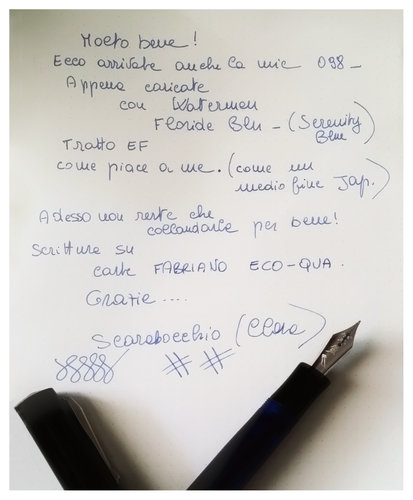 Molto bene!
Ecco arrivata anche la mia 098_
Appena caricata
con Waterman
Floride Blu - (Serenity
Blue)
Tratto EF
come piace a me. (come un
medio fine Jap.)
Adesso non resta che
collaudarla per bene!
Scrittura su
carta FABRIANO ECO-QUA.
Grazie....
Scarabocchio (Clara)